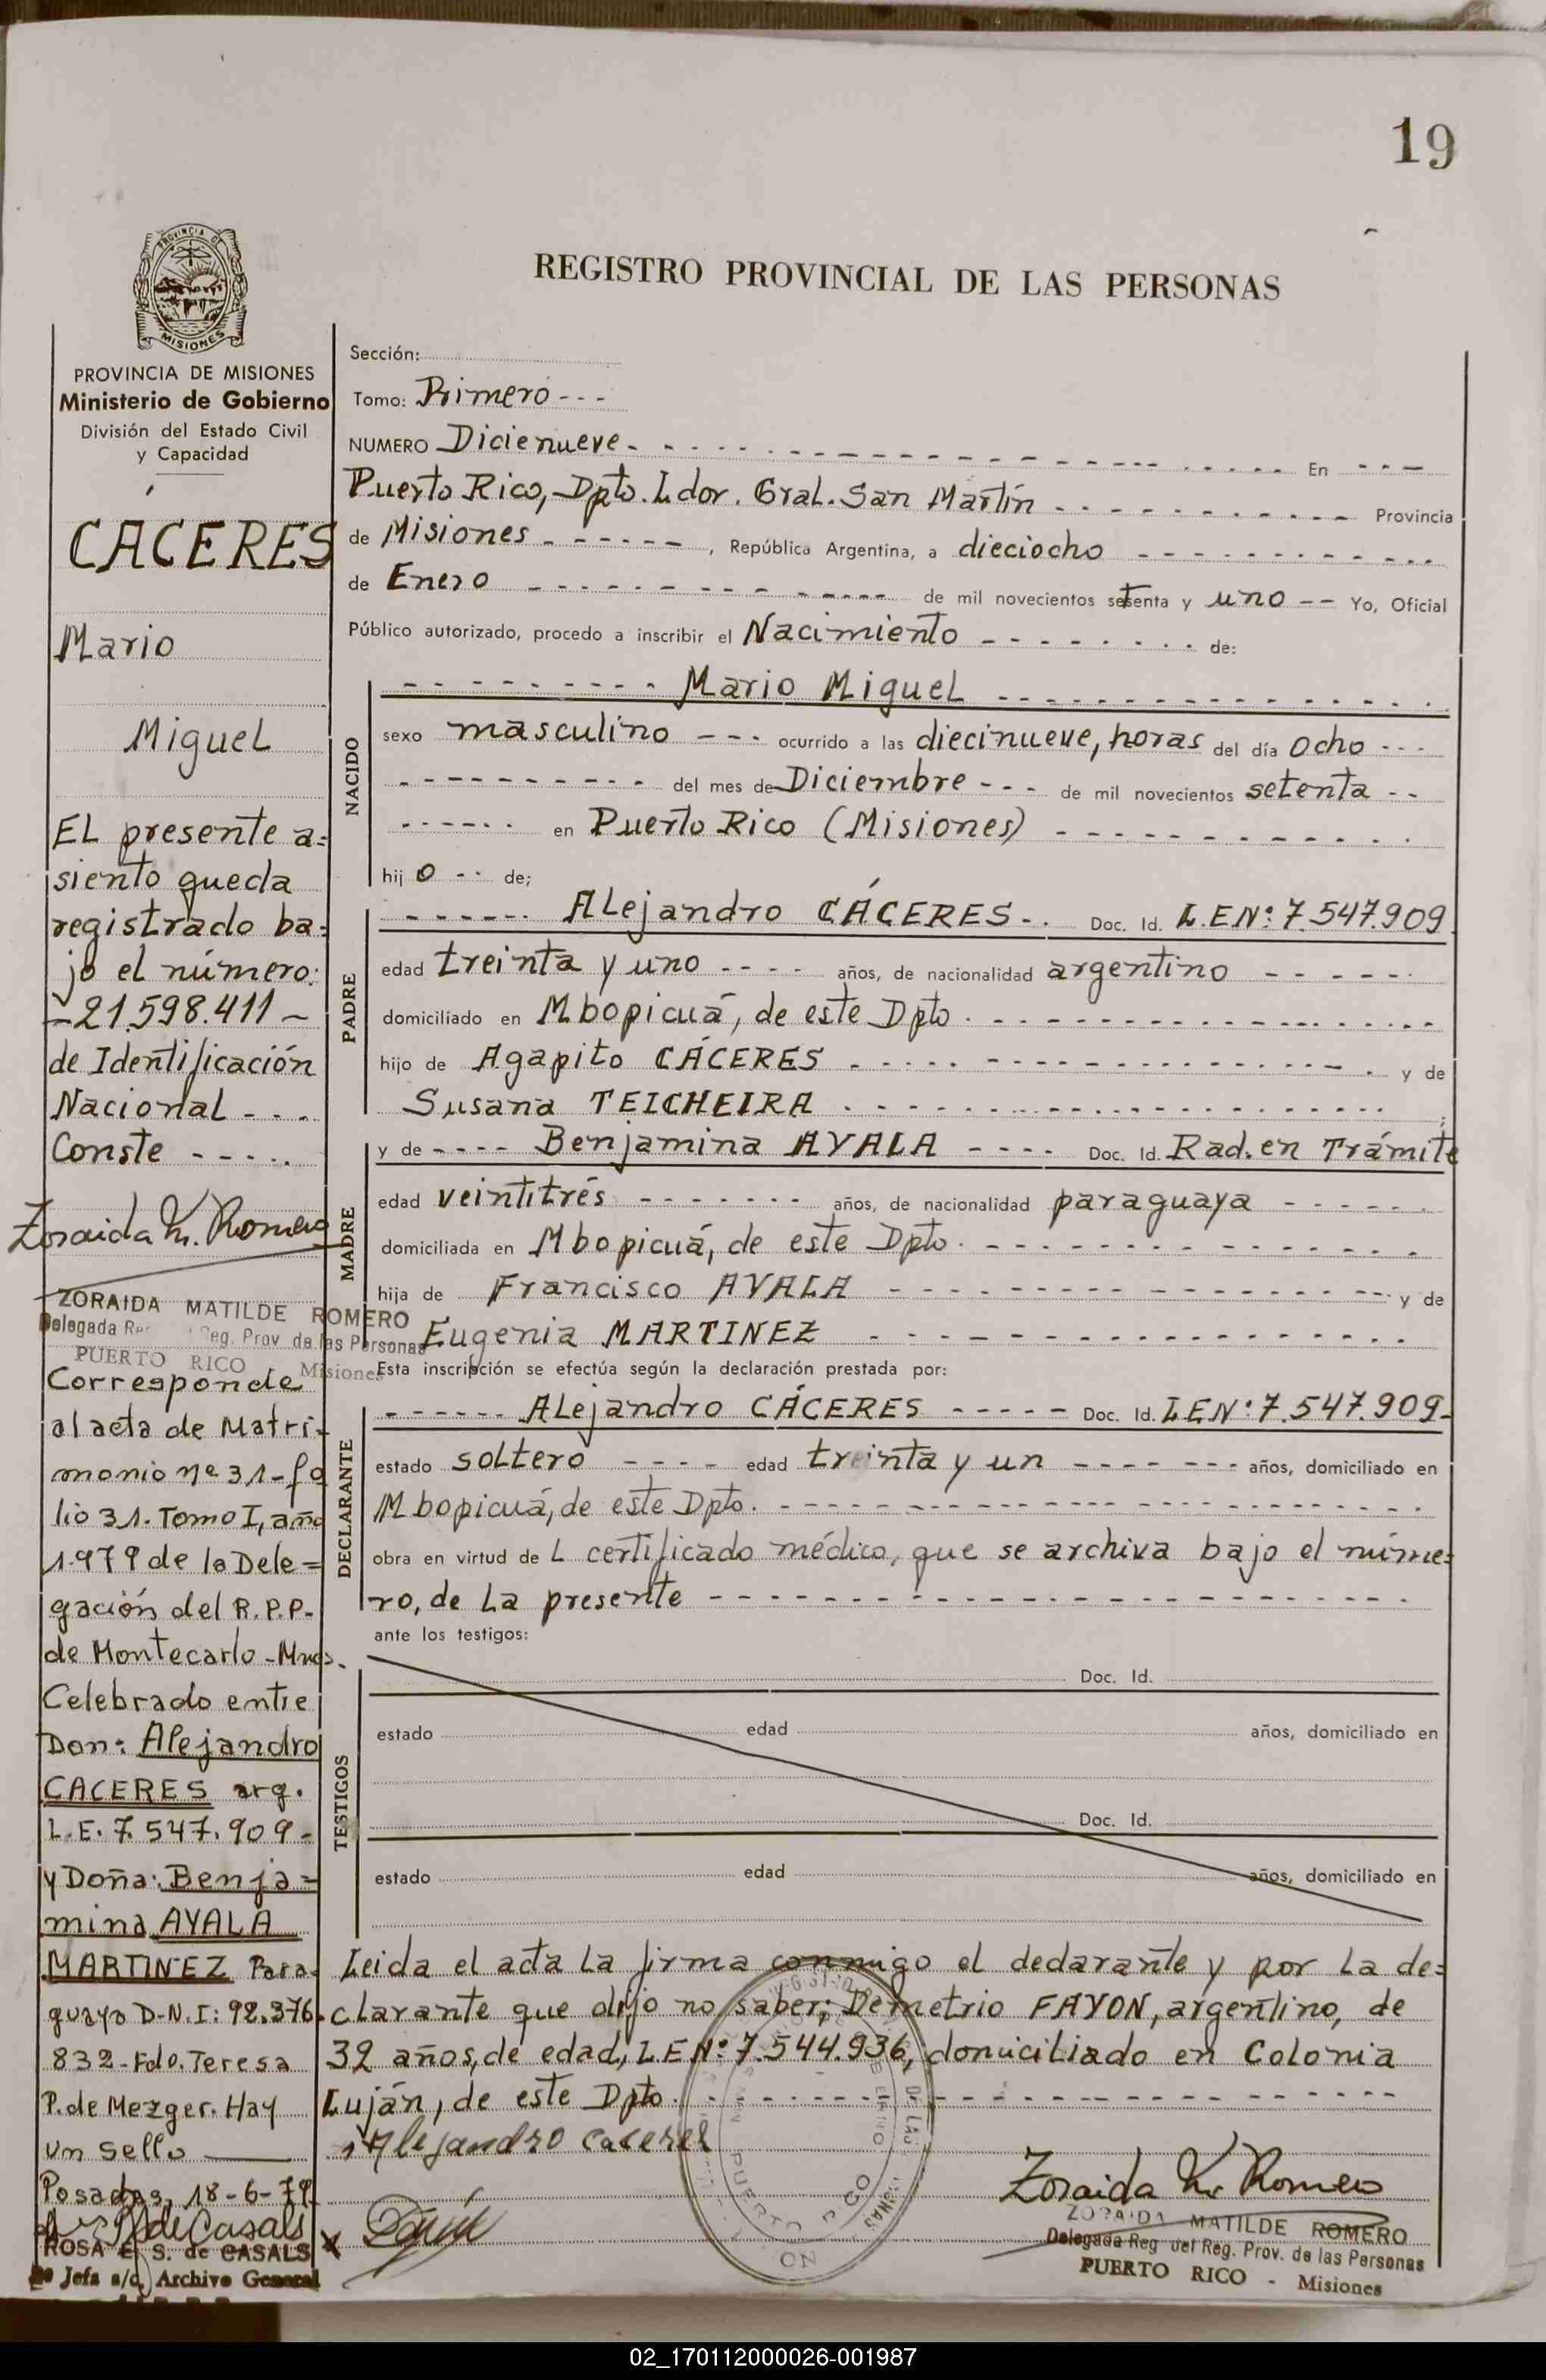 19
REGISTRO PROVINCIAL DE LAS PERSONAS
PROVINCIA DE
MISIONES
PROVINCIA DE MISIONES
Ministerio de Gobierno
División del Estado Civil
y Capacidad
CACERES
Mario
Miguel
EL presente a=
siento queda
registrado ba=
jo el número:
-21.598.411-
de Identificación
Nacional - - -
Conste - - - - -
Zoraida M. Romero
ZORAIDA MATILDE ROMERO
Delegada Reg. Prov. de las Personas
PUERTO RICO Misiones
Corresponde
al acta de Matri-
monio nº 31-fo
lio 31. Tomo I, año
1.979 de la Dele=
gación del R.P.P.
de Montecarlo-Mnes.
Celebrado entre
Don: Alejandro
CACERES arg.
L.E. 7.547.909-
y Doña: Benja=
mina AYALA
MARTINEZ Para-
guaya D-N.I: 92.376.
832-Fdo. Teresa
P. de Mezger. Hay
un sello
Posadas, 18-6-79
ROSA E. S. de CASALS
Jefa a/c. Archivo General
Sección:
Tomo: Primero - - -
NUMERO Dicienueve - - - En - - -
Puerto Rico, Dpto. Ldor. Gral. San Martín - - - Provincia
de Misiones - - - , República Argentina, a dieciocho - - -
de Enero - - - de mil novecientos setenta y uno - - Yo, Oficial
Público autorizado, procedo a inscribir el Nacimiento - - - de:
NACIDO
- - - Mario Miguel - - -
sexo masculino - - - ocurrido a las diecinueve, horas del día ocho - - -
- - - del mes de Diciembre - - - de mil novecientos setenta - -
- - - en Puerto Rico (Misiones) - - -
hij o - - de;
PADRE
- - - ALejandro CÁCERES - . Doc. Id. L.EN: 7.547.909
edad treinta y uno - - - - años, de nacionalidad argentino - - -
domiciliado en Mbopicuá, de este Dpto. - - -
hijo de Agapito CÁCERES - - - y de
Susana TEICHEIRA - - -
MADRE
y de - - - - Benjamina AYALA - - - - Doc. Id. Rad. en Trámite
edad veintitrés - - - años, de nacionalidad paraguaya - - -
domiciliada en Mbopicuá, de este Dpto. - - -
hija de Francisco AYALA - - - y de
Eugenia MARTINEZ - - -
Esta inscripción se efectúa según la declaración prestada por:
DECLARANTE
- - - ALejandro CÁCERES - - - Doc. Id. LEN: 7.547.909-
estado soltero - - - - edad treinta y un - - - años, domiciliado en
Mbopicuá, de este Dpto. - - -
obra en virtud de L certificado médico, que se archiva bajo el núme=
ro, de La presente - - -
ante los testigos:
TESTIGOS
Doc. Id.
estado edad años, domiciliado en
Doc. Id.
estado edad años, domiciliado en
Leida el acta La firma conmigo el declarante y por La de=
clarante que dijo no saber; Demetrio FAYON, argentino, de
32 años, de edad, LEN: 7.544.936, domiciliado en Colonia
Luján, de este Dpto. - - -
Alejandro Caceres
Zoraida M. Romero
ZORAIDA MATILDE ROMERO
Delegada Reg. del Reg. Prov. de las Personas
PUERTO RICO - Misiones
02_170112000026-001987